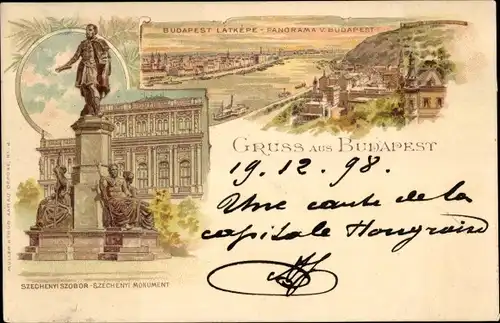 BUDAPEST LÁTKÉPE - PANORAMA V. BUDAPEST
GRUSS AUS BUDAPEST
19.12.98.
Une carte de la
capitale Hongroise
SZECHENYI SZOBOR - SZECHENYI MONUMENT